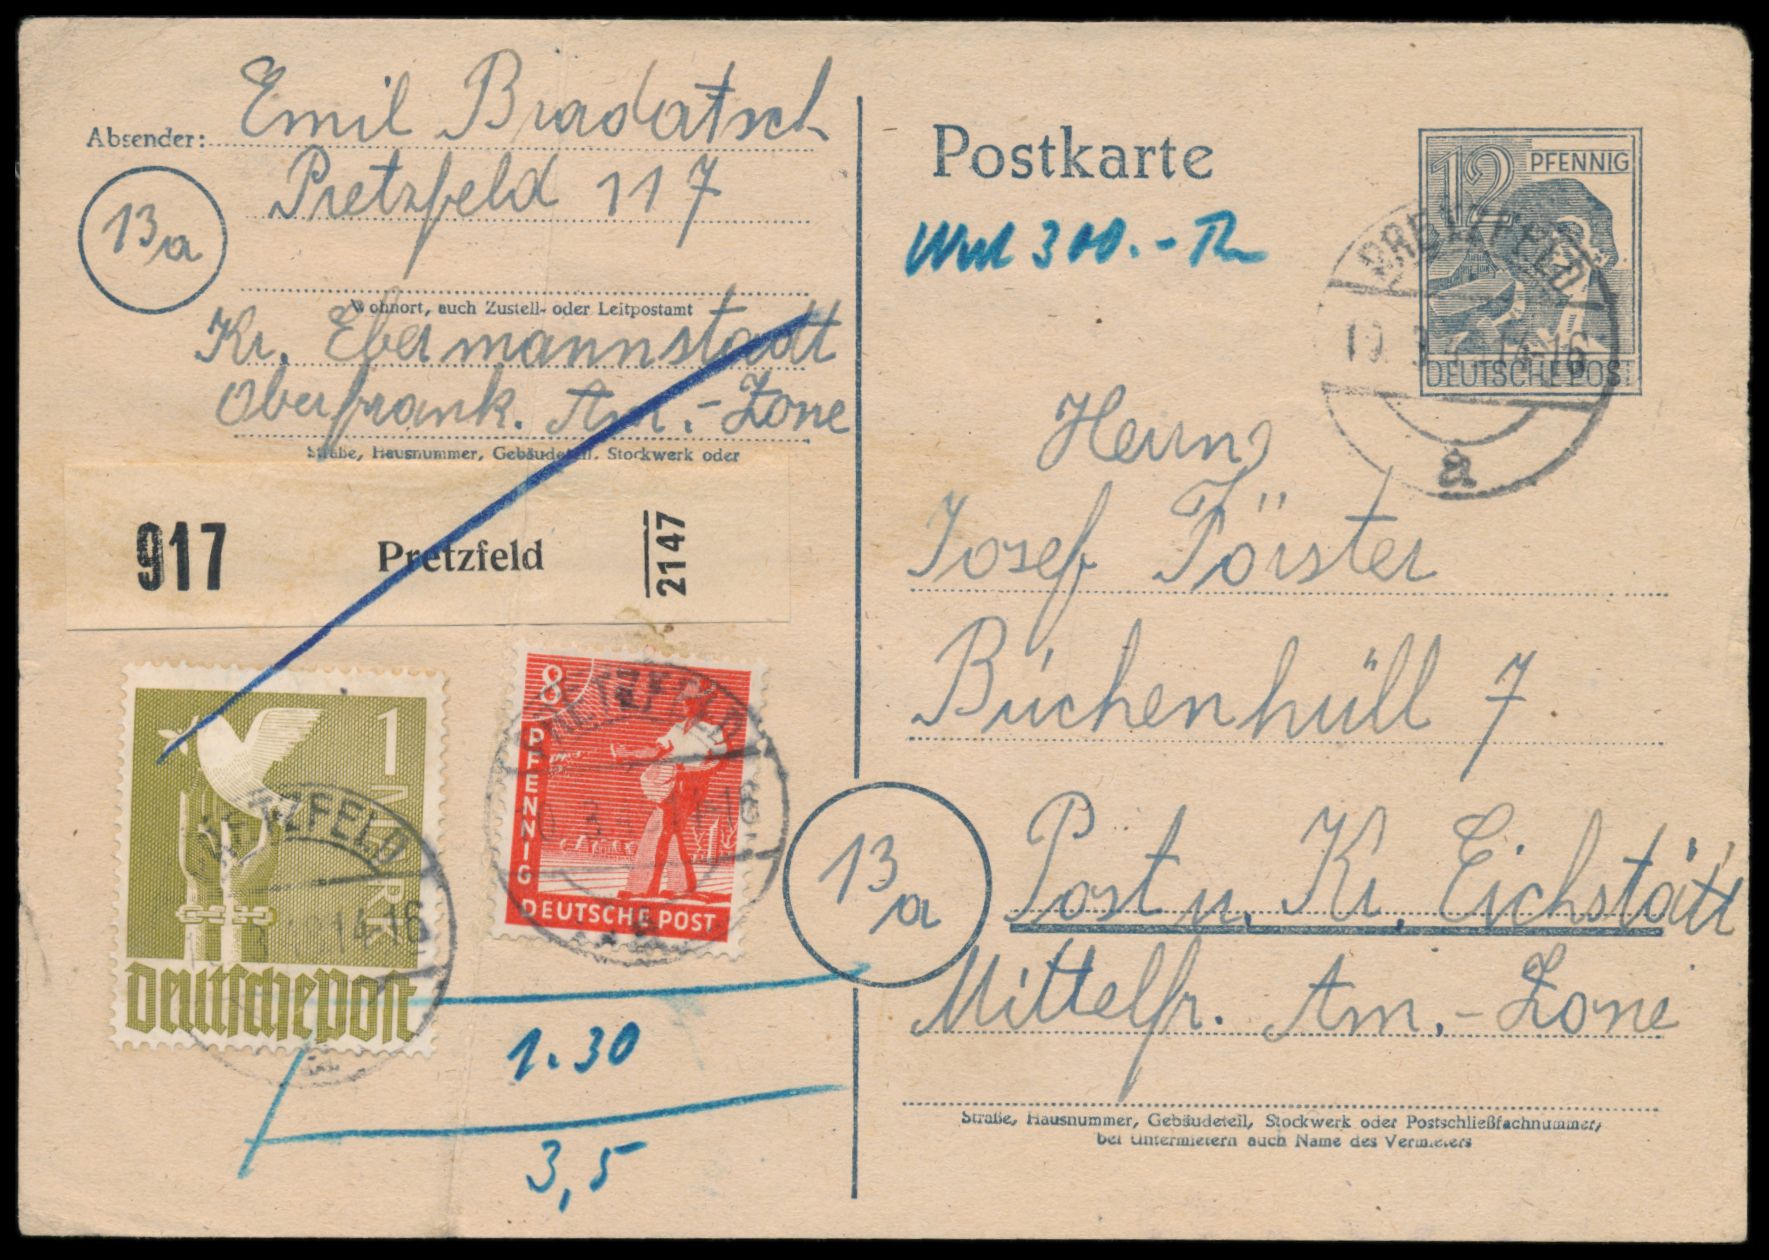 Absender: Emil Bradatsch
Pretzfeld 117
13a
Wohnort, auch Zustell- oder Leitpostamt
Kr. Ebermannstadt
Oberfrank. Am.-Zone
Straße, Hausnummer, Gebäudeteil, Stockwerk oder
917 Pretzfeld 2147
1 MARK
Deutsche Post
PRETZFELD
14-16
8 PFENNIG
DEUTSCHE POST
PRETZFELD
1.30
3,5
Postkarte
300.-
12 PFENNIG
DEUTSCHE POST
PRETZFELD
14-16
a
Herrn
Josef Förster
Büchenhüll 7
13a
Post u. Kr. Eichstätt
Mittelfr. Am.-Zone
Straße, Hausnummer, Gebäudeteil, Stockwerk oder Postschließfachnummer,
bei Untermietern auch Name des Vermieters